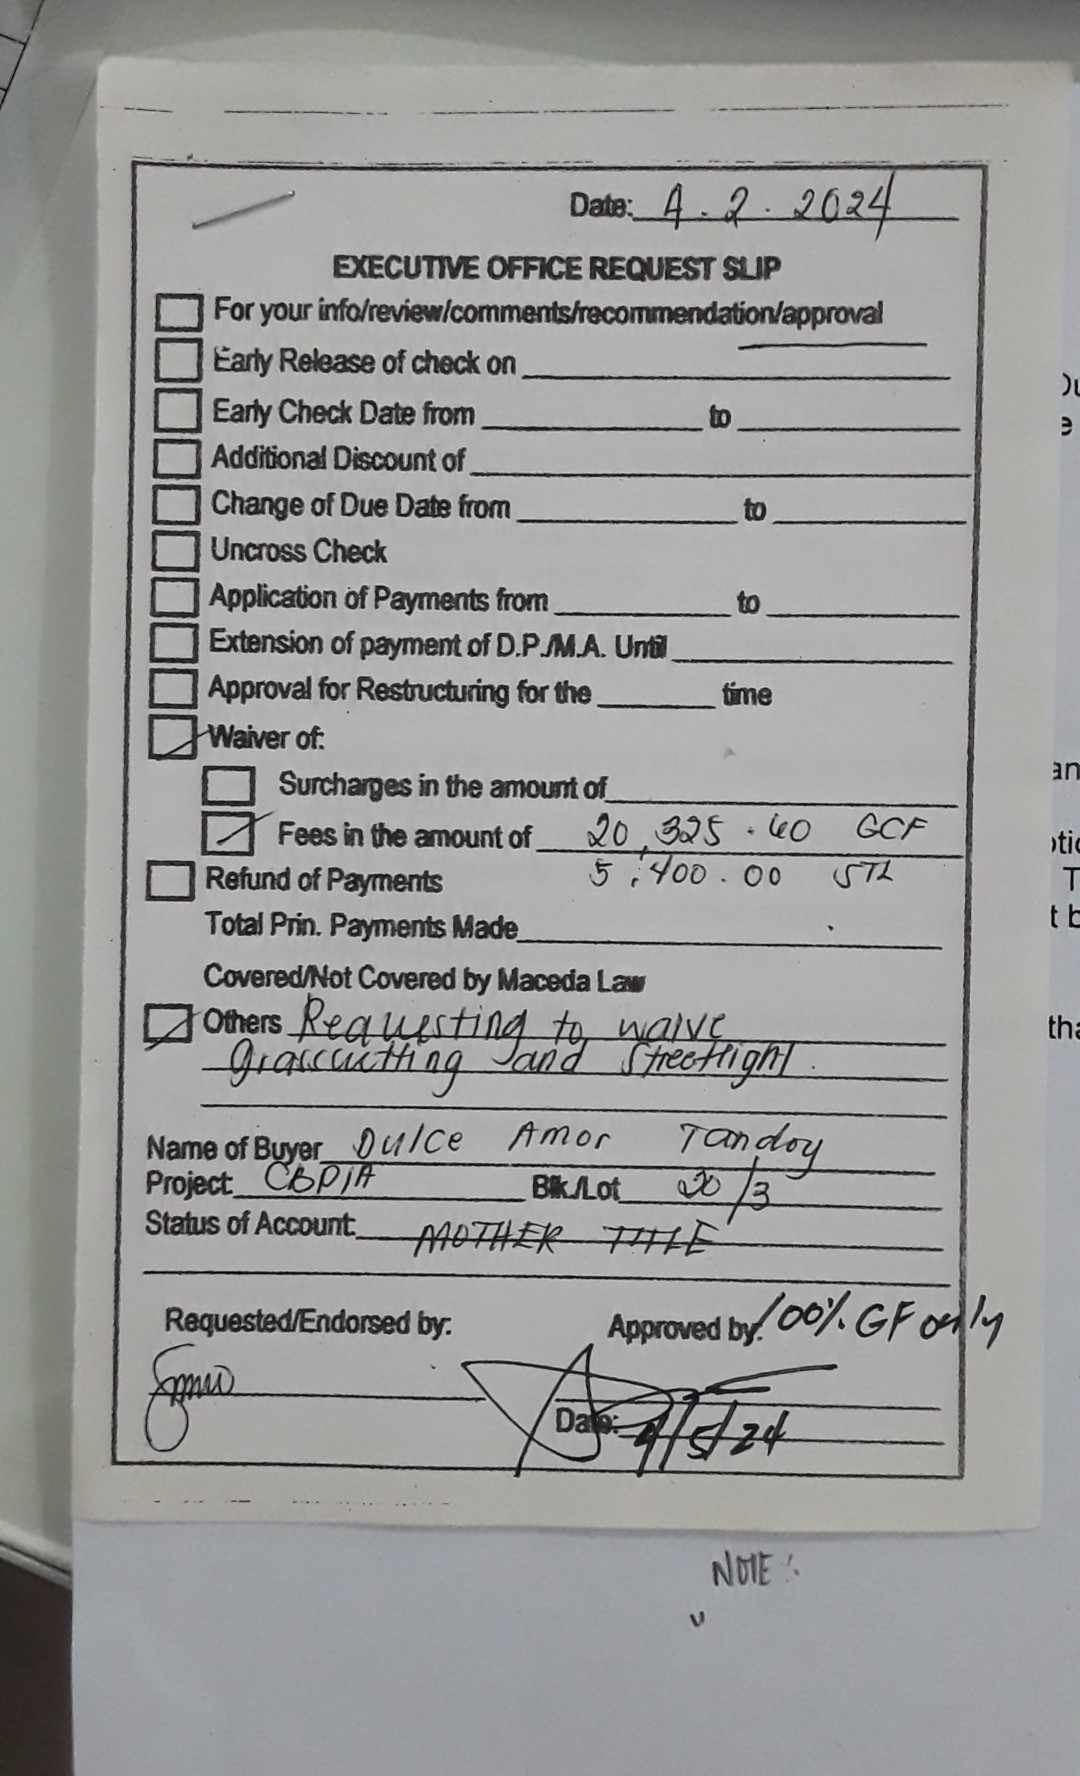 Date: 4.2.2024
EXECUTIVE OFFICE REQUEST SLIP
For your info/review/comments/recommendation/approval
Early Release of check on
Early Check Date from to
Additional Discount of
Change of Due Date from to
Uncross Check
Application of Payments from to
Extension of payment of D.P./M.A. Until
Approval for Restructuring for the time
Waiver of:
Surcharges in the amount of
Fees in the amount of 20,325.40 GCF
5,400.00 STL
Refund of Payments
Total Prin. Payments Made
Covered/Not Covered by Maceda Law
Others Requesting to waive
grasscutting and streetlight.
Name of Buyer Dulce Amor Tandoy
Project: CBPIA Blk./Lot 20/3
Status of Account: MOTHER TITLE
Requested/Endorsed by: Approved by: 100% GF only
Date: 4/5/24
NOTE: